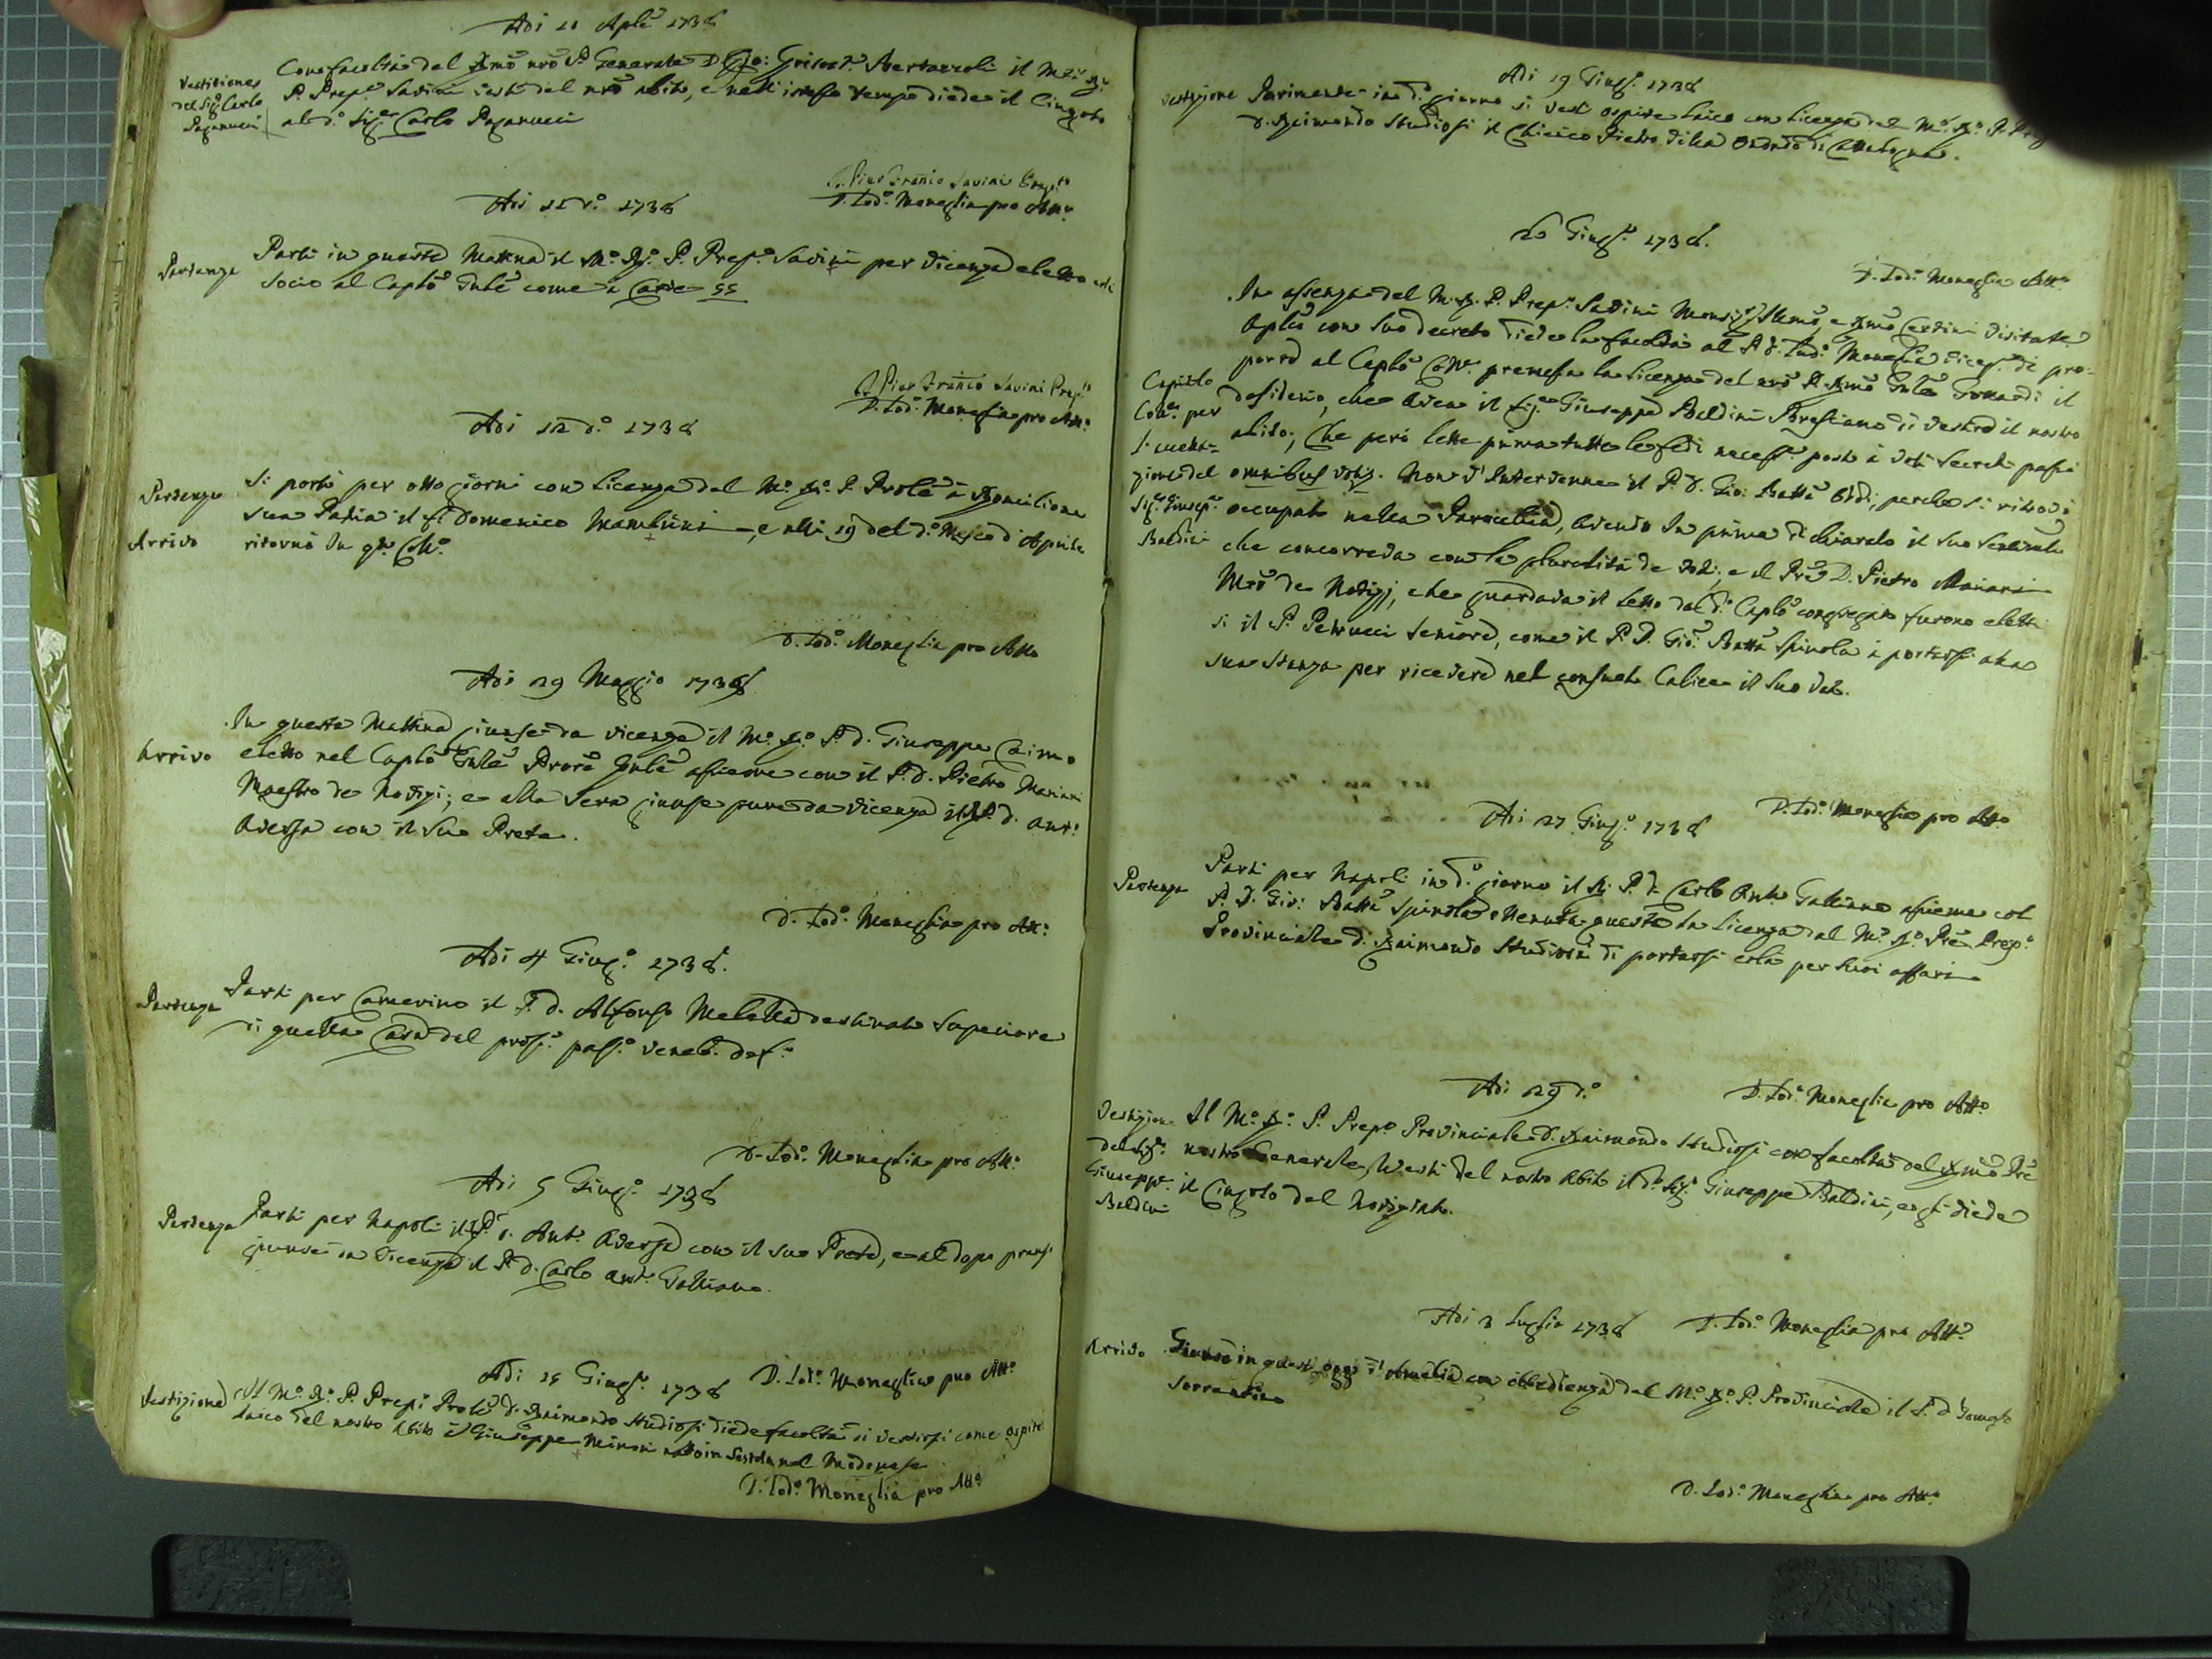 Adi 11 Aple 1738
Vestizione
del Sig. Carlo
Paganucci
Con facoltà del Rmo nro P. Generale D. Gio: Bertazzoli il M.
P. Prep.o Savini vestì del nro abito, e nell'istesso tempo diede il Cingolo
al d.o Sig. Carlo Paganucci
D. Pier Franco Savini Prep.to
D. Lod.o Moneglia pro Att.o
Adi 11 d.o 1738
Partenza
Partì in questa Mattina il M.o R.o P. Prep.o Savini per Vicenza eletto
socio al Caplo Gnle come a Carte 55
D. Pier Franco Savini Prep.to
D. Lod.o Moneglia pro Att.o
Adi 12 d.o 1738
Partenza
Si portò per otto giorni con licenza del M.o R.o P. Prole a Ronciglione
sua Patria il fr. Domenico Mambrini, e alli 19 del d.o Mese d'Aprile
Arrivo
ritornò in q.to Coll.o
D. Lod.o Moneglia pro Att.o
Adi 29 Maggio 1738
Arrivo
In questa Mattina giunse da Vicenza il M.o R.o P. D. Giuseppe Caimo
eletto nel Caplo Gnle Prore Gnle assieme con il P. D. Pietro Mariani
Maestro de Novizj; e alla sera giunse pure da Vicenza il P. D. Ant.o
Aversa con il suo Prete.
D. Lod.o Moneglia pro Att.o
Adi 4 Giug.o 1738.
Partenza
Partì per Camerino il P. D. Alfonso Meletta destinato Superiore
di quella Casa dal pross.o pass.o Venel. def.o
D. Lod.o Moneglia pro Att.o
Adi 5 Giug.o 1738
Partenza
Partì per Napoli il P. D. Ant.o Aversa con il suo Prete, e al dopo pranso
giunse da Vicenza il P. D. Carlo Ant.o Galliano.
D. Lod.o Moneglia pro Att.o
Adi 15 Giug.o 1738
Vestizione
Il M.o R.o P. Prep.o Prole D. Raimondo Studiosi diede facoltà di vestirsi come ospite
laico del nostro Abito a Giuseppe Minori nato in Sestola nel Modenese
D. Lod.o Moneglia pro Att.o
Adi 19 Giug.o 1738
Vestizione
Parimente in d.o giorno si vestì ospite laico con licenza del M.o R.o P.
D. Raimondo Studiosi il Chierico Pietro
D. Lod.o Moneglia Att.o
26 Giug.o 1738.
In assenza del M. R. P. Prep.o Savini Monsig. Illmo, e Rmo Cervini Visitatore
Aplico con suo decreto diede la facoltà al P. D. Lud.o Moneglia Vicep. di pro-
porre al Caplo Coll.e premessa la licenza del nro P. Rmo Gnle il
Capitolo
Coll.e per
l'accetta-
zione del
Sig.r Gius.e
Baldini
desiderio, che avea il Sig.r Giuseppe Baldini Bresciano di vestire il nostro
abito; Che però lette prima tutte le fedi necess.e posto a voti secreti passò
omnibus votis. Non v'intervenne il P. D. Gio: Batta Oddi; perche si ritrovò
occupato nella Parocchia, avendo in prima dichiarato il suo sentimento
che concorreva con la pluralità de voti; e il Pre D. Pietro Mariani
Mro de Novizj, che guardava il letto dal d.o Caplo congregato furono eletti
si il P. Petrucci Seniore, come il P. D. Gio: Batta Spinola a portarsi alla
sua stanza per ricevere nel consueto Calice il suo Voto.
D. Lod.o Moneglia pro Att.o
Adi 27 Giug.o 1738
Partenza
Partì per Napoli in d.o giorno il M. P. D. Carlo Ant.o Galliano assieme col
P. D. Gio: Batta Spinola ottenuta questo la licenza dal M.o R.o Pre Prep.o
Provinciale D. Raimondo Studiosi di portarsi colà per suoi affari
D. Lod.o Moneglia pro Att.o
Adi 29 d.o
Vestizione
del Sig.r
Giuseppe
Baldini
Il M.o R.o P. Prep.o Provinciale D. Raimondo Studiosi con facoltà del Rmo Pre
nostro Generale, Vestì del nostro Abito il d.o Sig.r Giuseppe Baldini, e gli diede
il Cingolo del Noviziato.
D. Lod.o Moneglia pro Att.o
Adi 3 Luglio 1738
Arrivo
Giunse in quest'oggi d'Amelia con obbedienza del M.o R.o P. Provinciale il P. D.
Sorrentino
D. Lod.o Moneglia pro Att.o